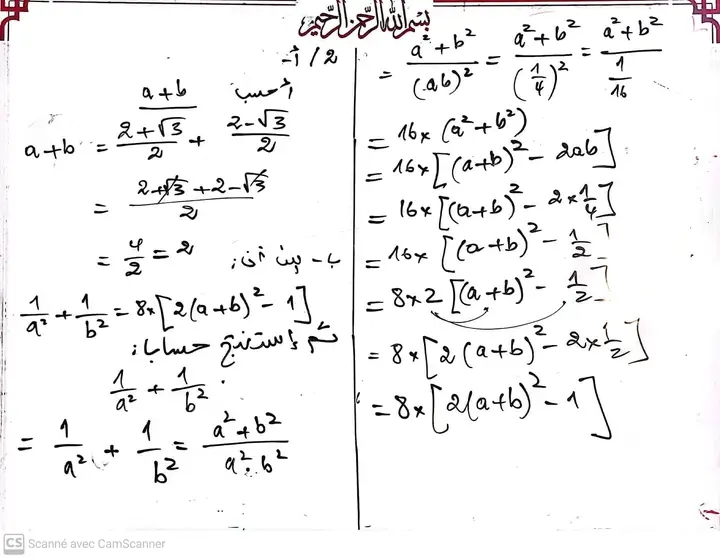 بسم الله الرحمن الرحيم
2/ أ-
أحسب a+b
a+b = \frac{2+√3}{2} + \frac{2-√3}{2}
= \frac{2+√3+2-√3}{2}
= \frac{4}{2} = 2
ب- بين أن:
\frac{1}{a²} + \frac{1}{b²} = 8×[2(a+b)² - 1]
ثم إستنتج حساب:
\frac{1}{a²} + \frac{1}{b²} .
= \frac{1}{a²} + \frac{1}{b²} = \frac{a²+b²}{a²·b²}
= \frac{a²+b²}{(ab)²} = \frac{a²+b²}{(\frac{1}{4})²} = \frac{a²+b²}{\frac{1}{16}}
= 16×(a²+b²)
= 16×[(a+b)² - 2ab]
= 16×[(a+b)² - 2×\frac{1}{4}]
= 16×[(a+b)² - \frac{1}{2}]
= 8×2[(a+b)² - \frac{1}{2}]
= 8×[2(a+b)² - 2×\frac{1}{2}]
= 8×[2(a+b)² - 1]
CS Scanné avec CamScanner